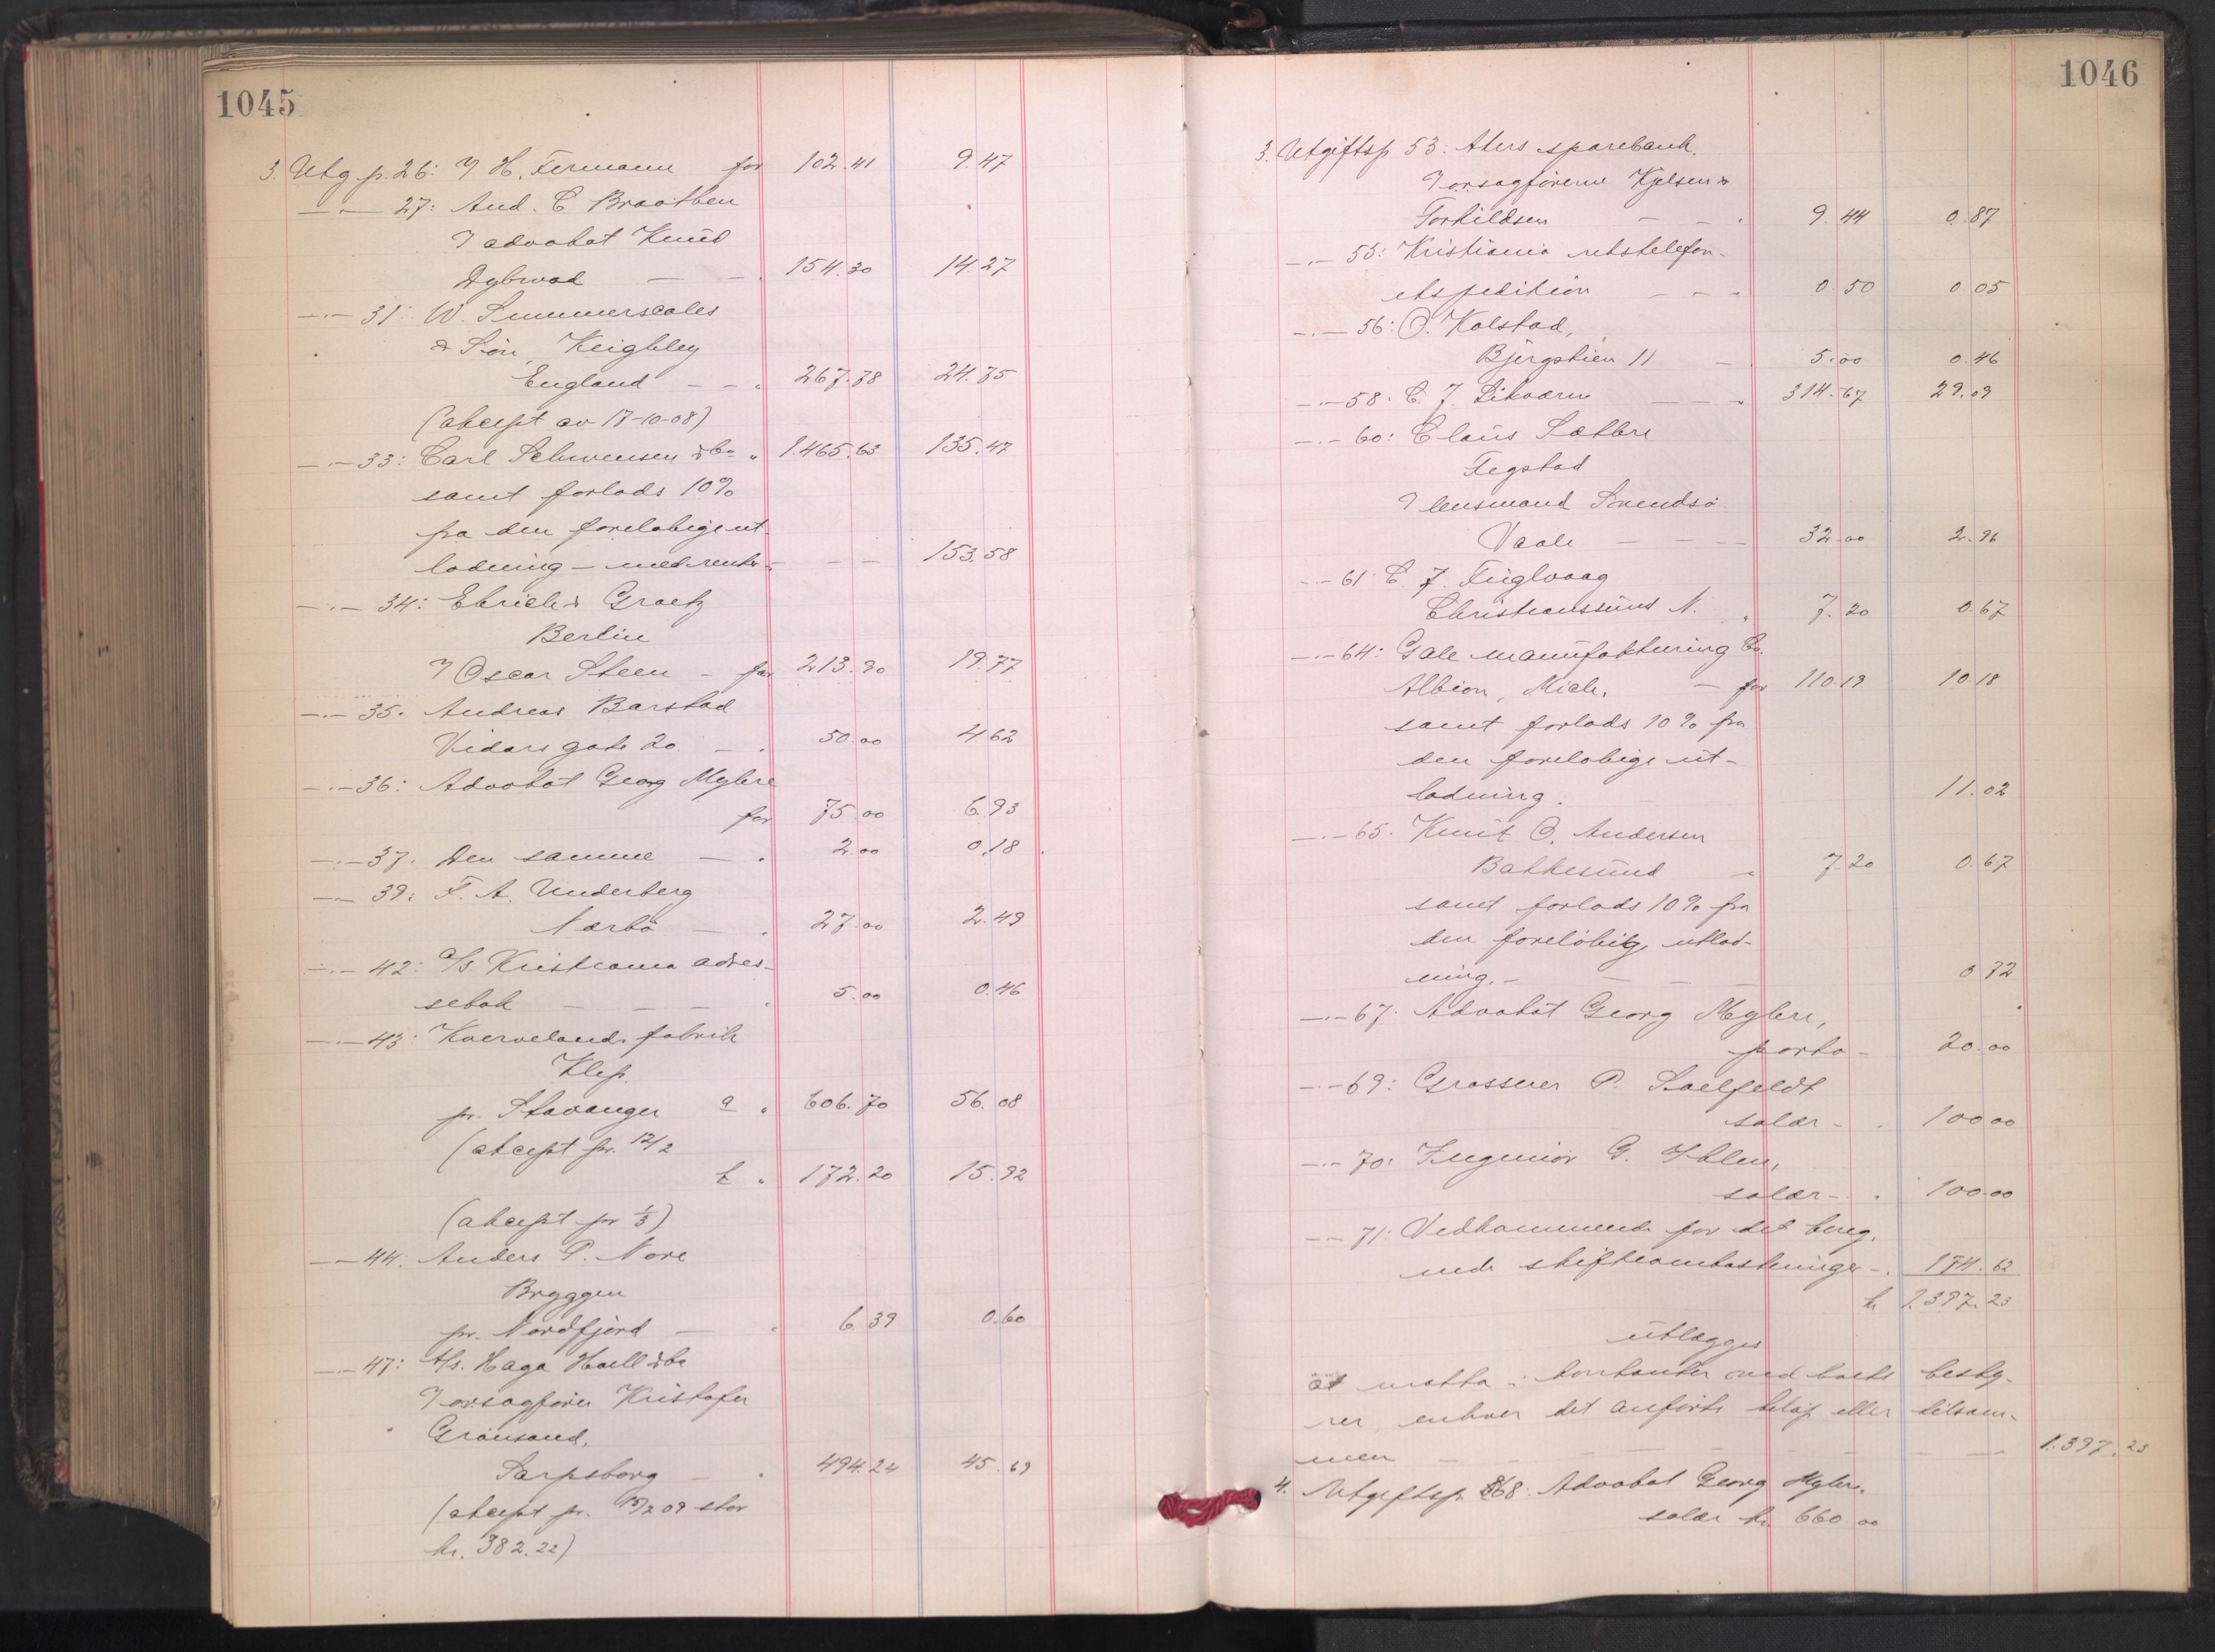 1045
3. Utg p. 26: V H. Fermann for 102.41 9.47
— " — 27: And. C Braathen
V advokat Knud
Dybwad — — " 154.30 14.27
— " — 31: W. Summerscales
& Søn, Keighley
England — — " 267.78 24.75
(aksept av 17-10-08)
— " — 33: Carl Schwensen & Co " 1465.63 135.47
samt forlods 10%
pa den foreløbige ut-
lodning — med renter — — — 153.58
— " — 34: Ehrich & Graetz
Berlin
V Oscar Steen — for 213.90 19.77
— " — 35. Andreas Barstad
Vidars gate 20. — " 50.00 4.62
— " — 36: Advokat Georg Myhre
for 75.00 6.93
— " — 37. Den samme — " 2.00 0.18
— " — 39: F. A. Underberg
Nærbø — " 27.00 2.49
— " — 42: A/s. Kristiania adres-
sebok — — — " 5.00 0.46
— " — 43: Kvernelands fabrik
Klep.
pr. Stavanger a " 606.70 56.08
(aksept pr. 12/2
b " 172.20 15.92
(aksept pr 1/3)
— " — 44. Anders P. Nore
Bryggen
pr. Nordfjord — " 6.39 0.60
— " — 47: A/s. Haga Hoell & Co
V orsagfører Kristofer
Grønsand,
Sarpsborg — " 494.24 45.69
(aksept pr. 15/2 09 stor
kr. 382.22)
1046
3. Utgiftsp 53. Akers sparebank.
V orsagførerne Kjelsen &
Torkildsen — — " 9.44 0.87
— " — 55: Kristiania rikstelefon-
ekspedition — — " 0.50 0.05
— " — 56: O. Kolstad,
Bjergstien 11 — " 5.00 0.46
— " — 58. C. J. — — " 314.67 29.09
— " — 60: Claus Sætbre
Fegstad
V lensmand
Vaale — — — 32.00 2.96
— " — 61 C. J. Fuglvaag
Christianssund N. " 7.20 0.67
— " — 64: Gale manufakturing Co.
Albion, Mich. — for 110.19 10.18
samt forlods 10% pa
den foreløbige ut-
lodning. 11.02
— " — 65. Knut O. Andersen
Bakkesund " 7.20 0.67
samt forlods 10% pa
den foreløbige utlod-
ning. — — — — 0.72
— " — 67. Advokat Georg Myhre,
porto — 20.00
— " — 69: Grosserer P. Staelfeldt
salær — " 100.00
— " — 70. Ingeniør G. Ihlen,
salær — " 100.00
— " — 71: Vedkommende for det bereg-
nede skifteomkostninger —. 174.62
kr 1.397.23
utlægges
at motta i kontanter ved boets besty-
rer, enhver det anførte beløp eller tilsam-
men — — — — — — — — 1.397.23
4. Utgiftsp. 68: Advokat Georg Myhre,
salær kr. 660.00